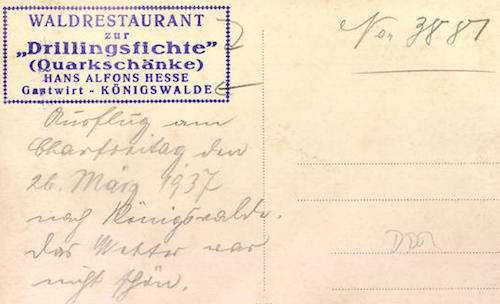 WALDRESTAURANT
zur
„Drillingsfichte”
(Quarkschänke)
HANS ALFONS HESSE
Gastwirt - KÖNIGSWALDE
No. 3887
Ausflug am
Charfreitag den
26. März 1937
nach Königswalde.
Das Wetter war
nicht schön.